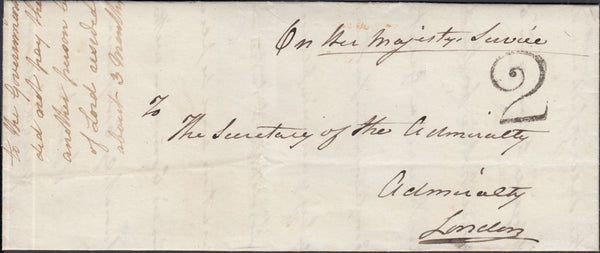 On Her Majesty's Service
2
To
The Secretary of the Admiralty
Admiralty
London
to the Government
did not pay the
another person to
of Lord resided
about 3 Months